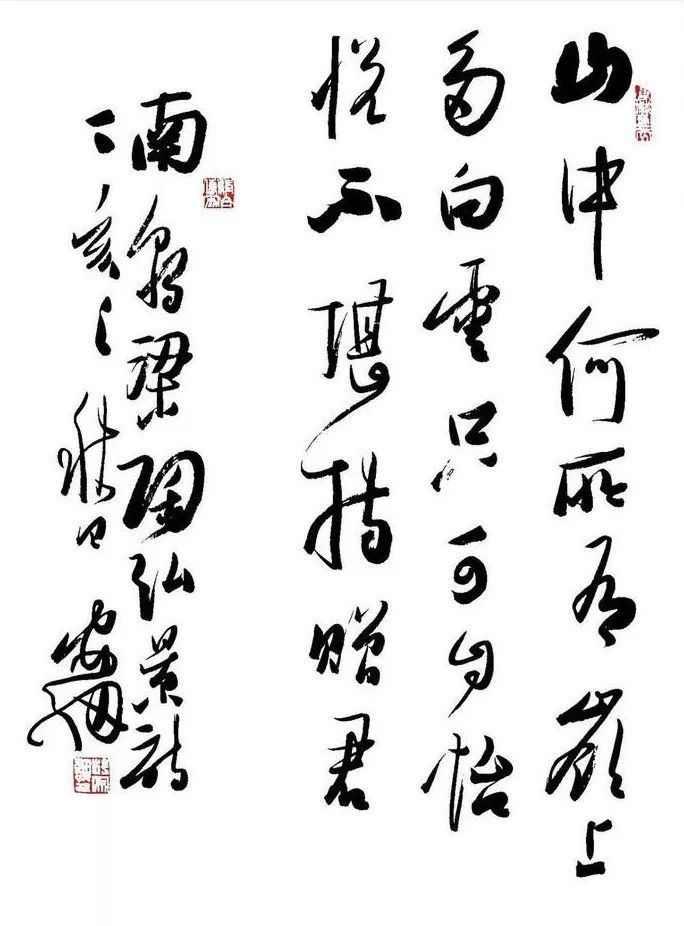 山中何所有嶺上
多白雲只可自怡
悅不堪持贈君
南朝梁陶弘景詩
丁亥之秋日